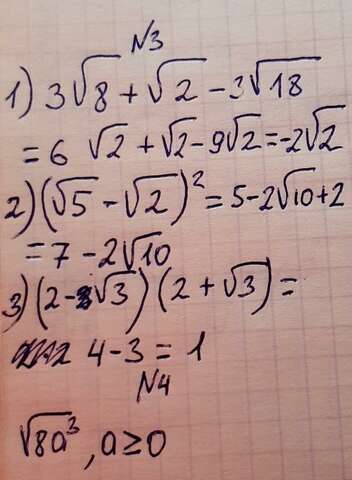 N3
1) 3√8 + √2 - 3√18
= 6 √2 + √2 - 9√2 = -2√2
2) (√5 - √2)² = 5 - 2√10 + 2
= 7 - 2√10
3) (2 - √3) (2 + √3) =
4 - 3 = 1
N4
√8a³, a ≥ 0